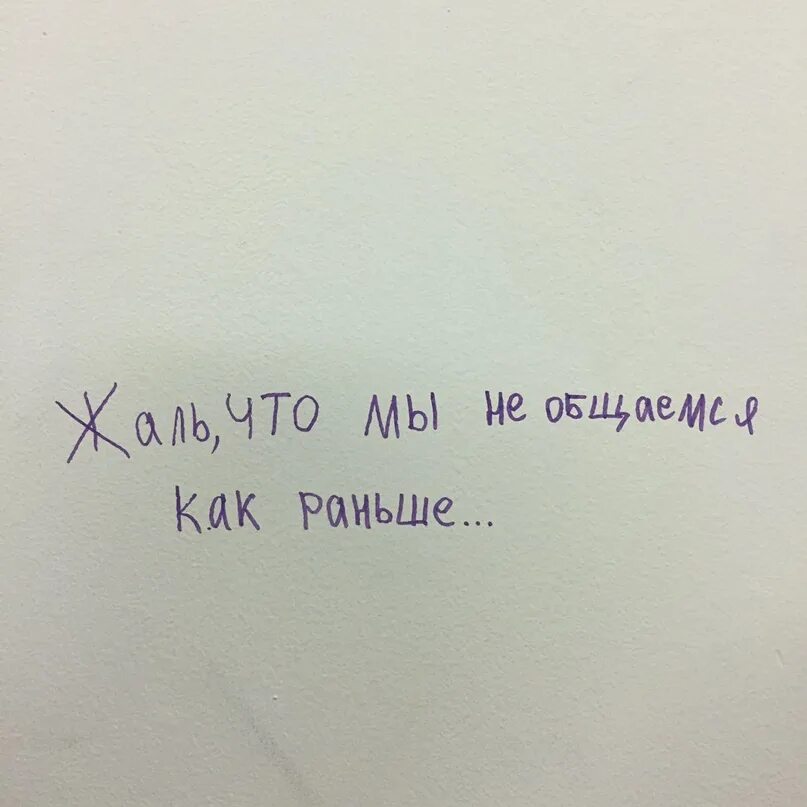 Жаль, что мы не общаемся
как раньше...